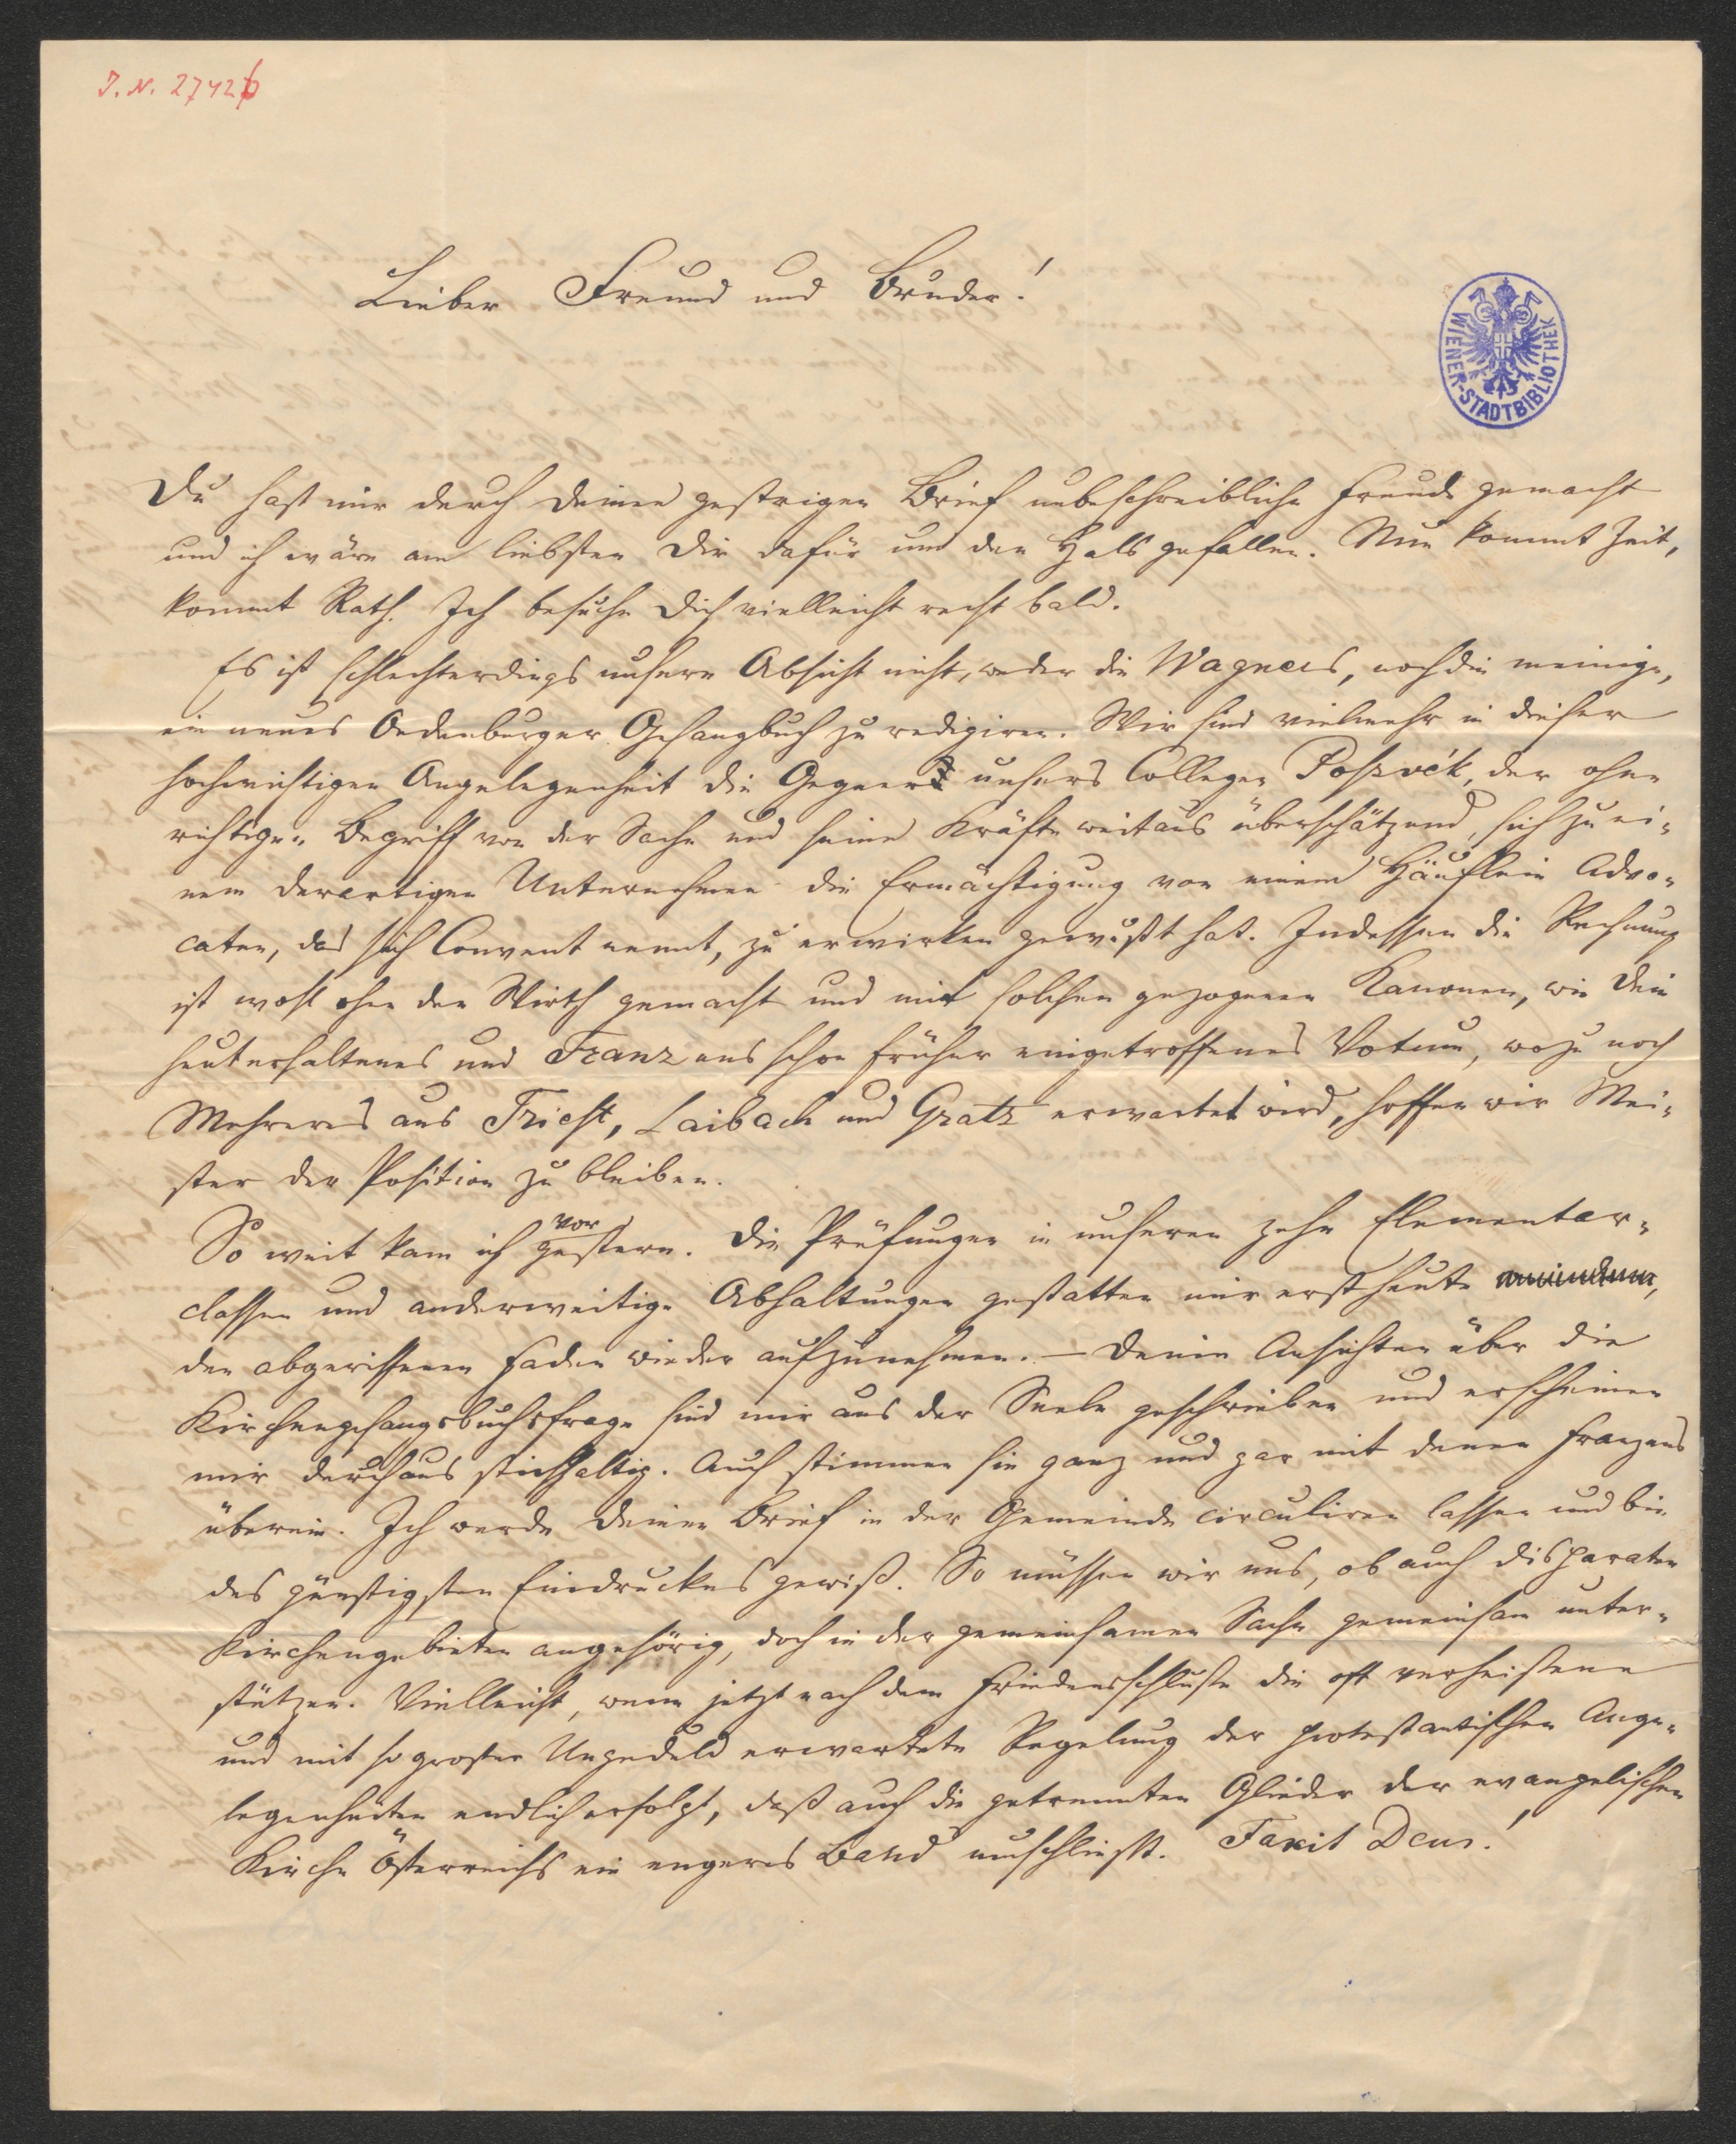 J. N. 27426
Lieber Freund und Bruder!
WIENER-STADTBIBLIOTHEK
Du hast mir durch Deinen gestrigen Brief unbeschreibliche Freude gemacht
und ich wäre am liebsten Dir dafür um den Hals gefallen. Nun kommt Zeit,
kommt Rath. Ich besuche Dich vielleicht recht bald.
Es ist schlechterdings unsere Absicht nicht, weder die Wagners, noch die meinige,
ein neues Oedenburger Gesangbuch zu redigiren. Wir sind vielmehr in dieser
hochwichtigen Angelegenheit die Gegner unsers Collegen Poszvék, der ohne
richtigen Begriff von der Sache und seine Kräfte weitaus überschätzend, sich zu ei-
nem derartigen Unternehmen die Ermächtigung von einem Häuflein Advo-
caten, das sich Convent nennt, zu erwirken gewußt hat. Indessen die Rechnung
ist wohl ohne den Wirth gemacht und mit solchen gezogenen Kanonen, wie Dein
heut erhaltenes und Franz ens schon früher eingetroffenes Votum, wozu noch
Mehreres aus Triest, Laibach und Gratz erwartet wird, hoffen wir Mei-
ster der Position zu bleiben.
So weit kam ich vorgestern. Die Prüfungen in unseren zehn Elementar-
classen und anderweitige Abhaltungen gestatten mir erst heute,
den abgerissenen Faden wieder aufzunehmen. – Deine Ansichten über die
Kirchengesangsbuchsfrage sind mir aus der Seele geschrieben und erscheinen
mir durchaus stichhaltig. Auch stimmen sie ganz und gar mit denen Franzens
überein. Ich werde Deinen Brief in der Gemeinde circuliren lassen und bin
des günstigsten Eindruckes gewiß. So müssen wir uns, ob auch disparaten
Kirchengebieten angehörig, doch in der gemeinsamen Sache gemeinsam unter-
stützen. Vielleicht, wenn jetzt nach dem Friedensschluße die oft verheißene
und mit so großer Ungeduld erwartete Regelung der protestantischen Ange-
legenheiten endlich erfolgt, daß auch die getrennten Glieder der evangelischen
Kirche Österreichs ein engeres Band umschließt. Faxit Deus!